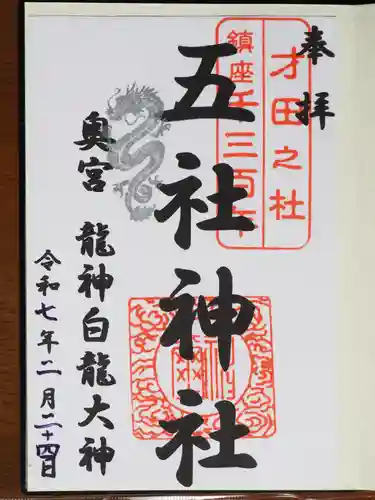 奉拝
才田之杜
鎮座千三百年
五社神社
奥宮 龍神白龍大神
令和七年二月二十四日